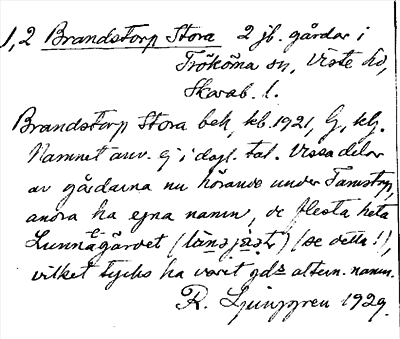 1,2 Brandstorp Stora 2 jb. gårdar i
Trökörna sn, Viste hd,
Skarab. l.
Brandstorp Stora bek, kb. 1921, G, klg.
Namnet anv. ej i dagl. tal. Vissa delar
av gårdarna nu hörande under Tamstorp,
andra ha egna namn, de flesta heta
Lunnagärdet (se detta!),
vilket tycks ha varit gds altern. namn.
R. Ljunggren 1929.